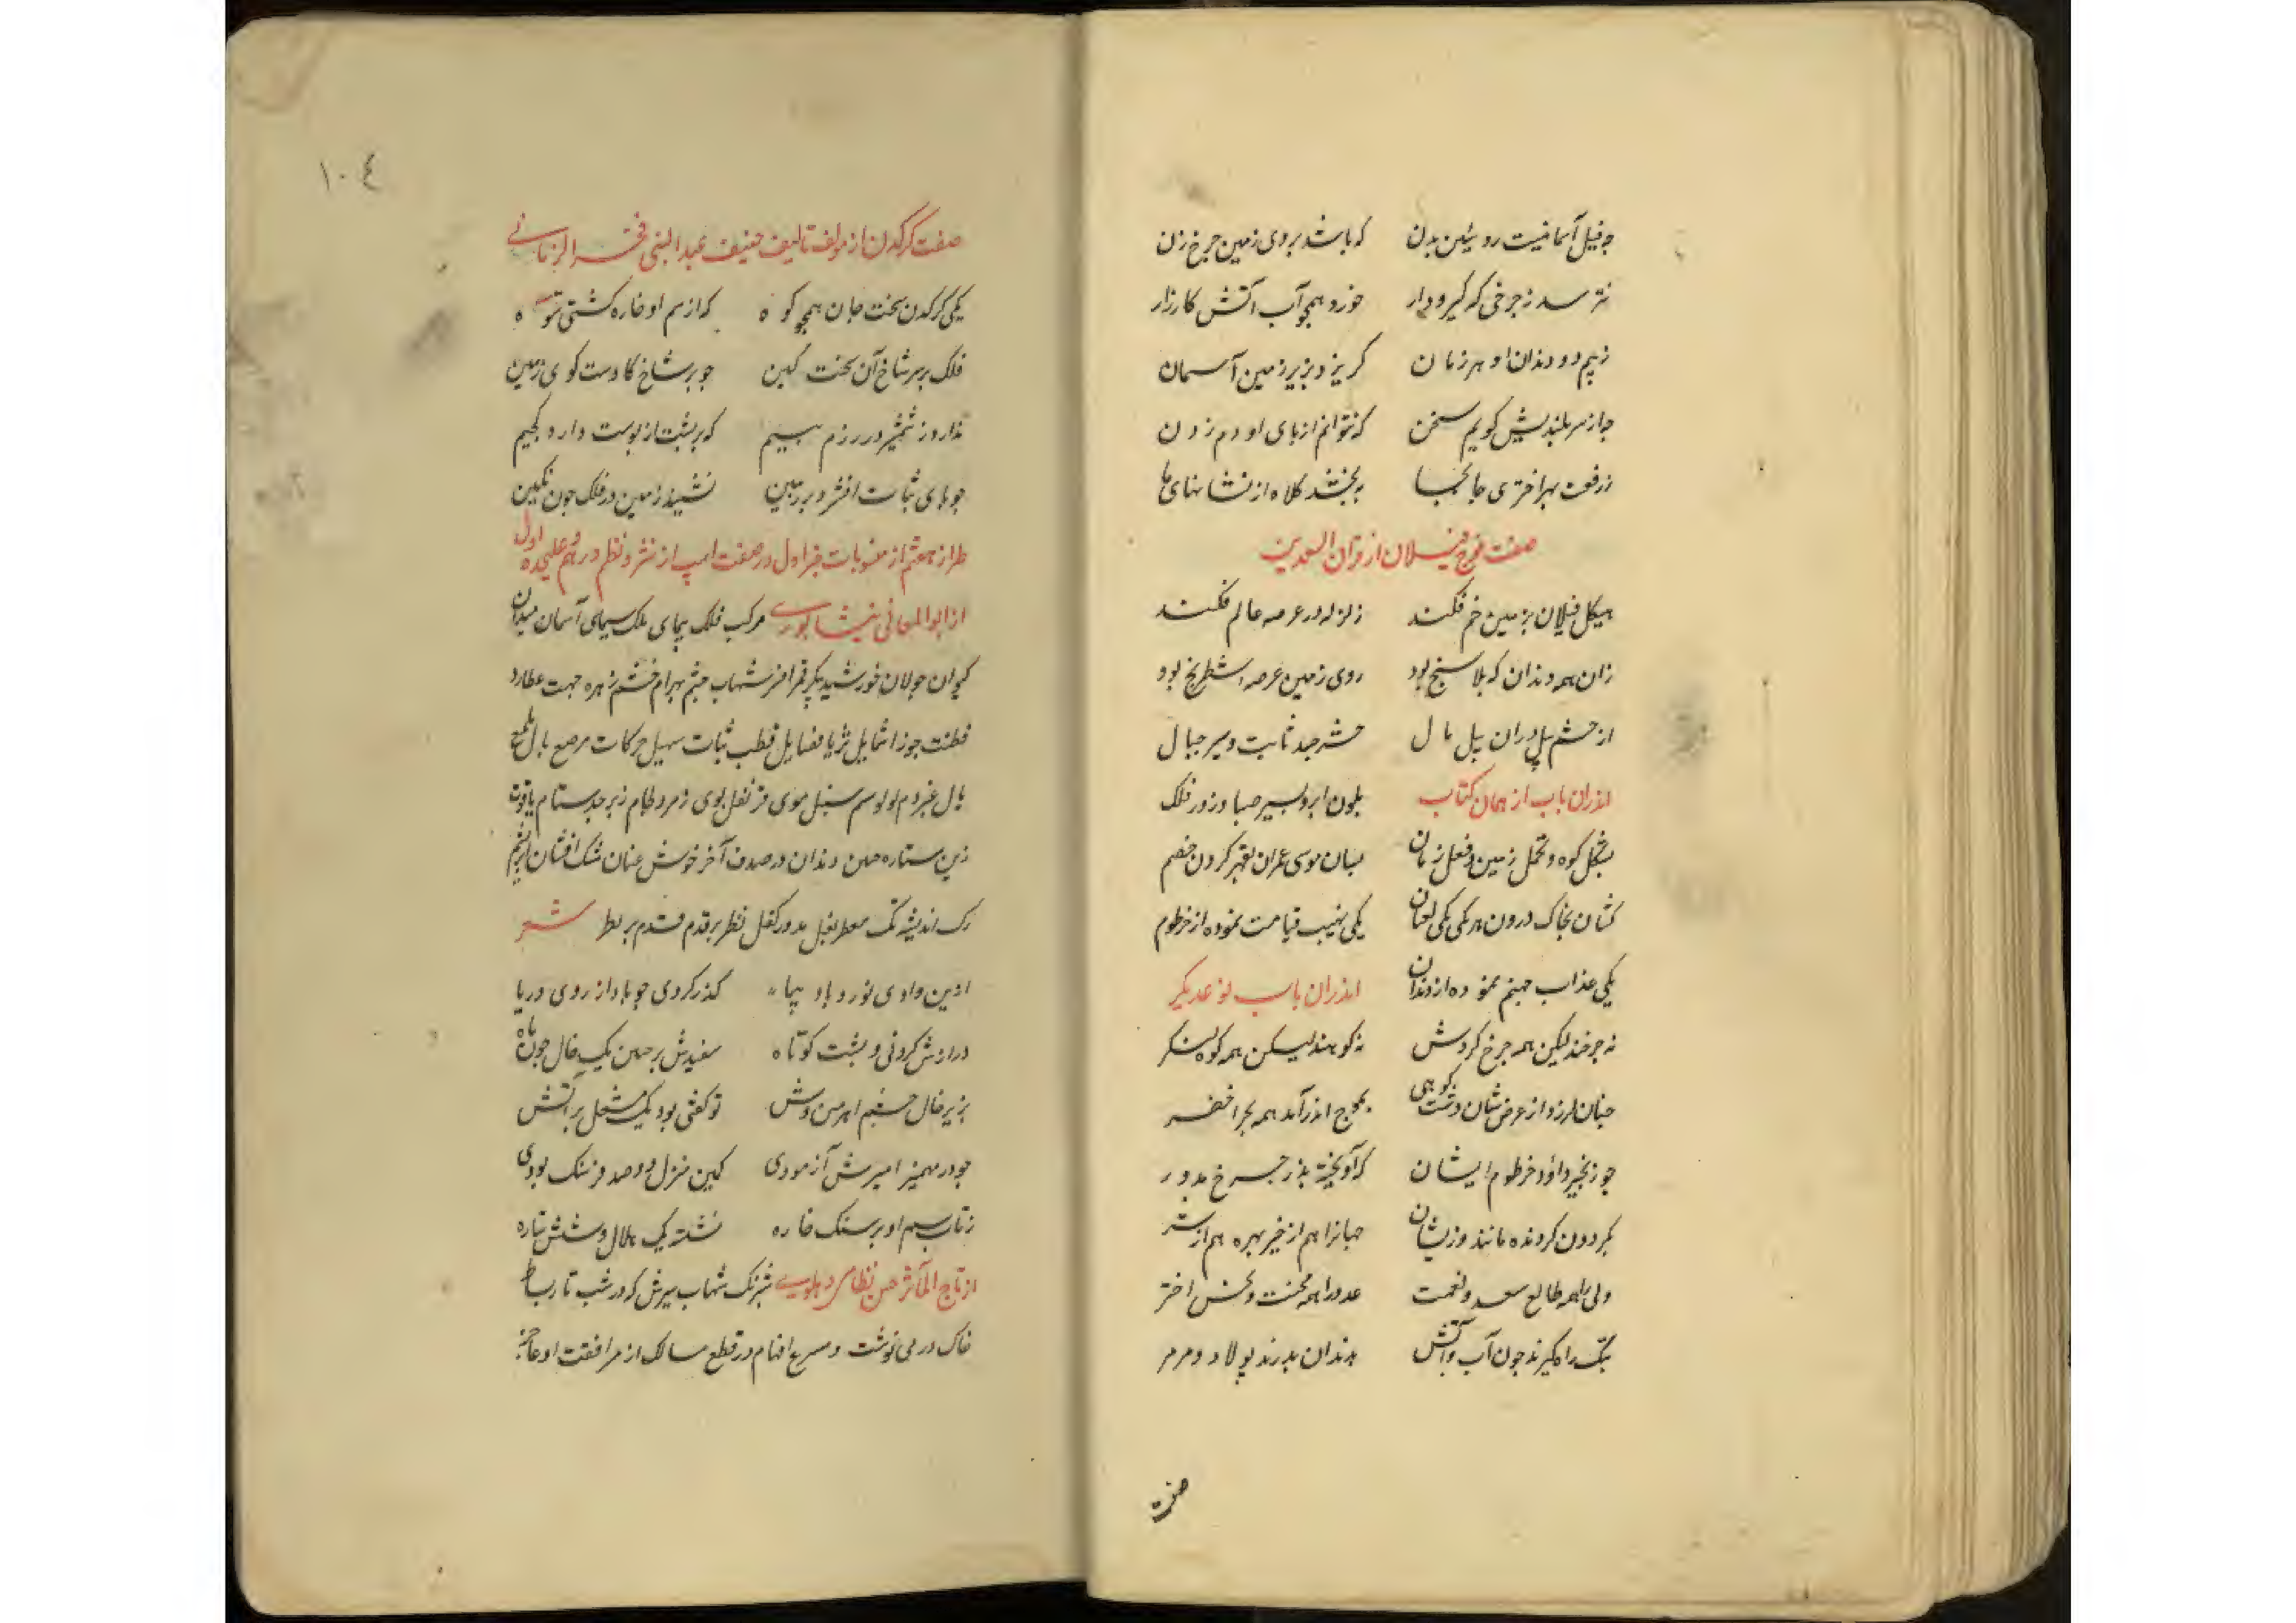 چه فیل آسمانیست روئین بدن که باشد بروی زمین چرخ زن
نترسد ز چرخی که گیرودار خورد همچو آب آتش کارزار
ز بیم دو دندان او هر زمان گریزد بزیر زمین آسمان
چه از سر بلندیش گویم سخن که نتوانم از پای او دم زدن
ز رفعت بهر اختری جابجا ببخشد کلاه از نشانهای پا
صفت فوج فیلان از قران السعدین
هیکل فیلان بزمین خم فکند زلزله در عرصه عالم فکند
زان همه دندان که بلا سنج بود روی زمین عرصه شطرنج بود
از حشم پیلوران پیل مال حشر جبد ثابت و سیر جبال
اندران باب از همان کتاب بلون ابر و بسیر صبا و زور فلک
بشکل کوه و تحمل زمین و فعل زمان بسان موسی عمران بقهر کردن خصم
کشان بخاک درون هر یکی یکی ثعبان یکی نهیب قیامت نموده از خرطوم
یکی عذاب جهنم نموده از دندان اندران باب نوعدیگر
نه چرخند لیکن همه چرخ گردش نه کوهند لیسکن همه کوه لنگر
چنان لرزد از عرض شان دشت کوهی بموج اندر آمد همه بحر اخضر
چو زنجیر داؤد خرطوم ایشان که آویخته بذر چرخ مدور
بگردون گردنده مانند وزیشان جهانرا هم از خیر بهره هم از شر
ولی را همه طالع سعد و نعمت عدو را همه محنت و نحس اختر
بتگ راه گیرند چون آب و آتش بدندان بدرند پولاد و مرمر
صفت
١٠٤
صفت کرگدن از مولف تالیف ضعیف عبدالنبی فخر الزمانی
یکی کرگدن سخت جان همچو کوه که از سم او خاره گشتی ستوه
فلک بر سر شاخ آن سخت کین چو بر شاخ گاوست گوی زمین
ندارد ز شمشیر در رزم بیم که بر پشت از پوست دارد گجیم
چو پای ثبات افشرد بر زمین نشیند زمین در فلک چون نگین
طراز هفتم از منسوبات خبر اول در صفت اسپ از نثر و نظم درهم و علیحده اول
از ابوالمعانی نیشاپوری مرکب فلک پیمای ملک سیمای آسمان میدان
کیوان جولان خورشید پیکر قمر افسر شهاب چشم بهرام خشم زهره جبهت عطارد
فطنت جوزا شمایل ثریا فضایل قطب ثبات سهیل حرکات مرصع بال ملمع
یال عنبر دم لولو سم سنبل موی قرنفل بوی زمرد لجام زبرجد ستام یاقوت
زین ستاره جبین دندان در صدف آخر خوش عنان مشک افشان ابریشم
رگ اندیشه تک معطر بغل مدور کفل نظر بر قدم قدم بر بط شعر
ازین وادی نورد باد پیما گذر کردی چو باد از روی دریا
درازش گردنی و پشت کوتاه سفیدش بر جبین یک خال چون ماه
بزیر خال چشم اهرمن وش تو گفتی بود یک مشعل پر آتش
چو در مهمیز امیرش آزمودی کمین منزل دو صد فرسنگ بودی
ز تاب سم او بر سنگ خاره نشسته یک هلال و شش ستاره
از تاج المآثر حسن نظامی دهلوی شبرنگ شهاب سیرش که در شب تار بساط
خاک در می نوشت و مسرع افهام در قطع مسالک از مرافقت او عاجز